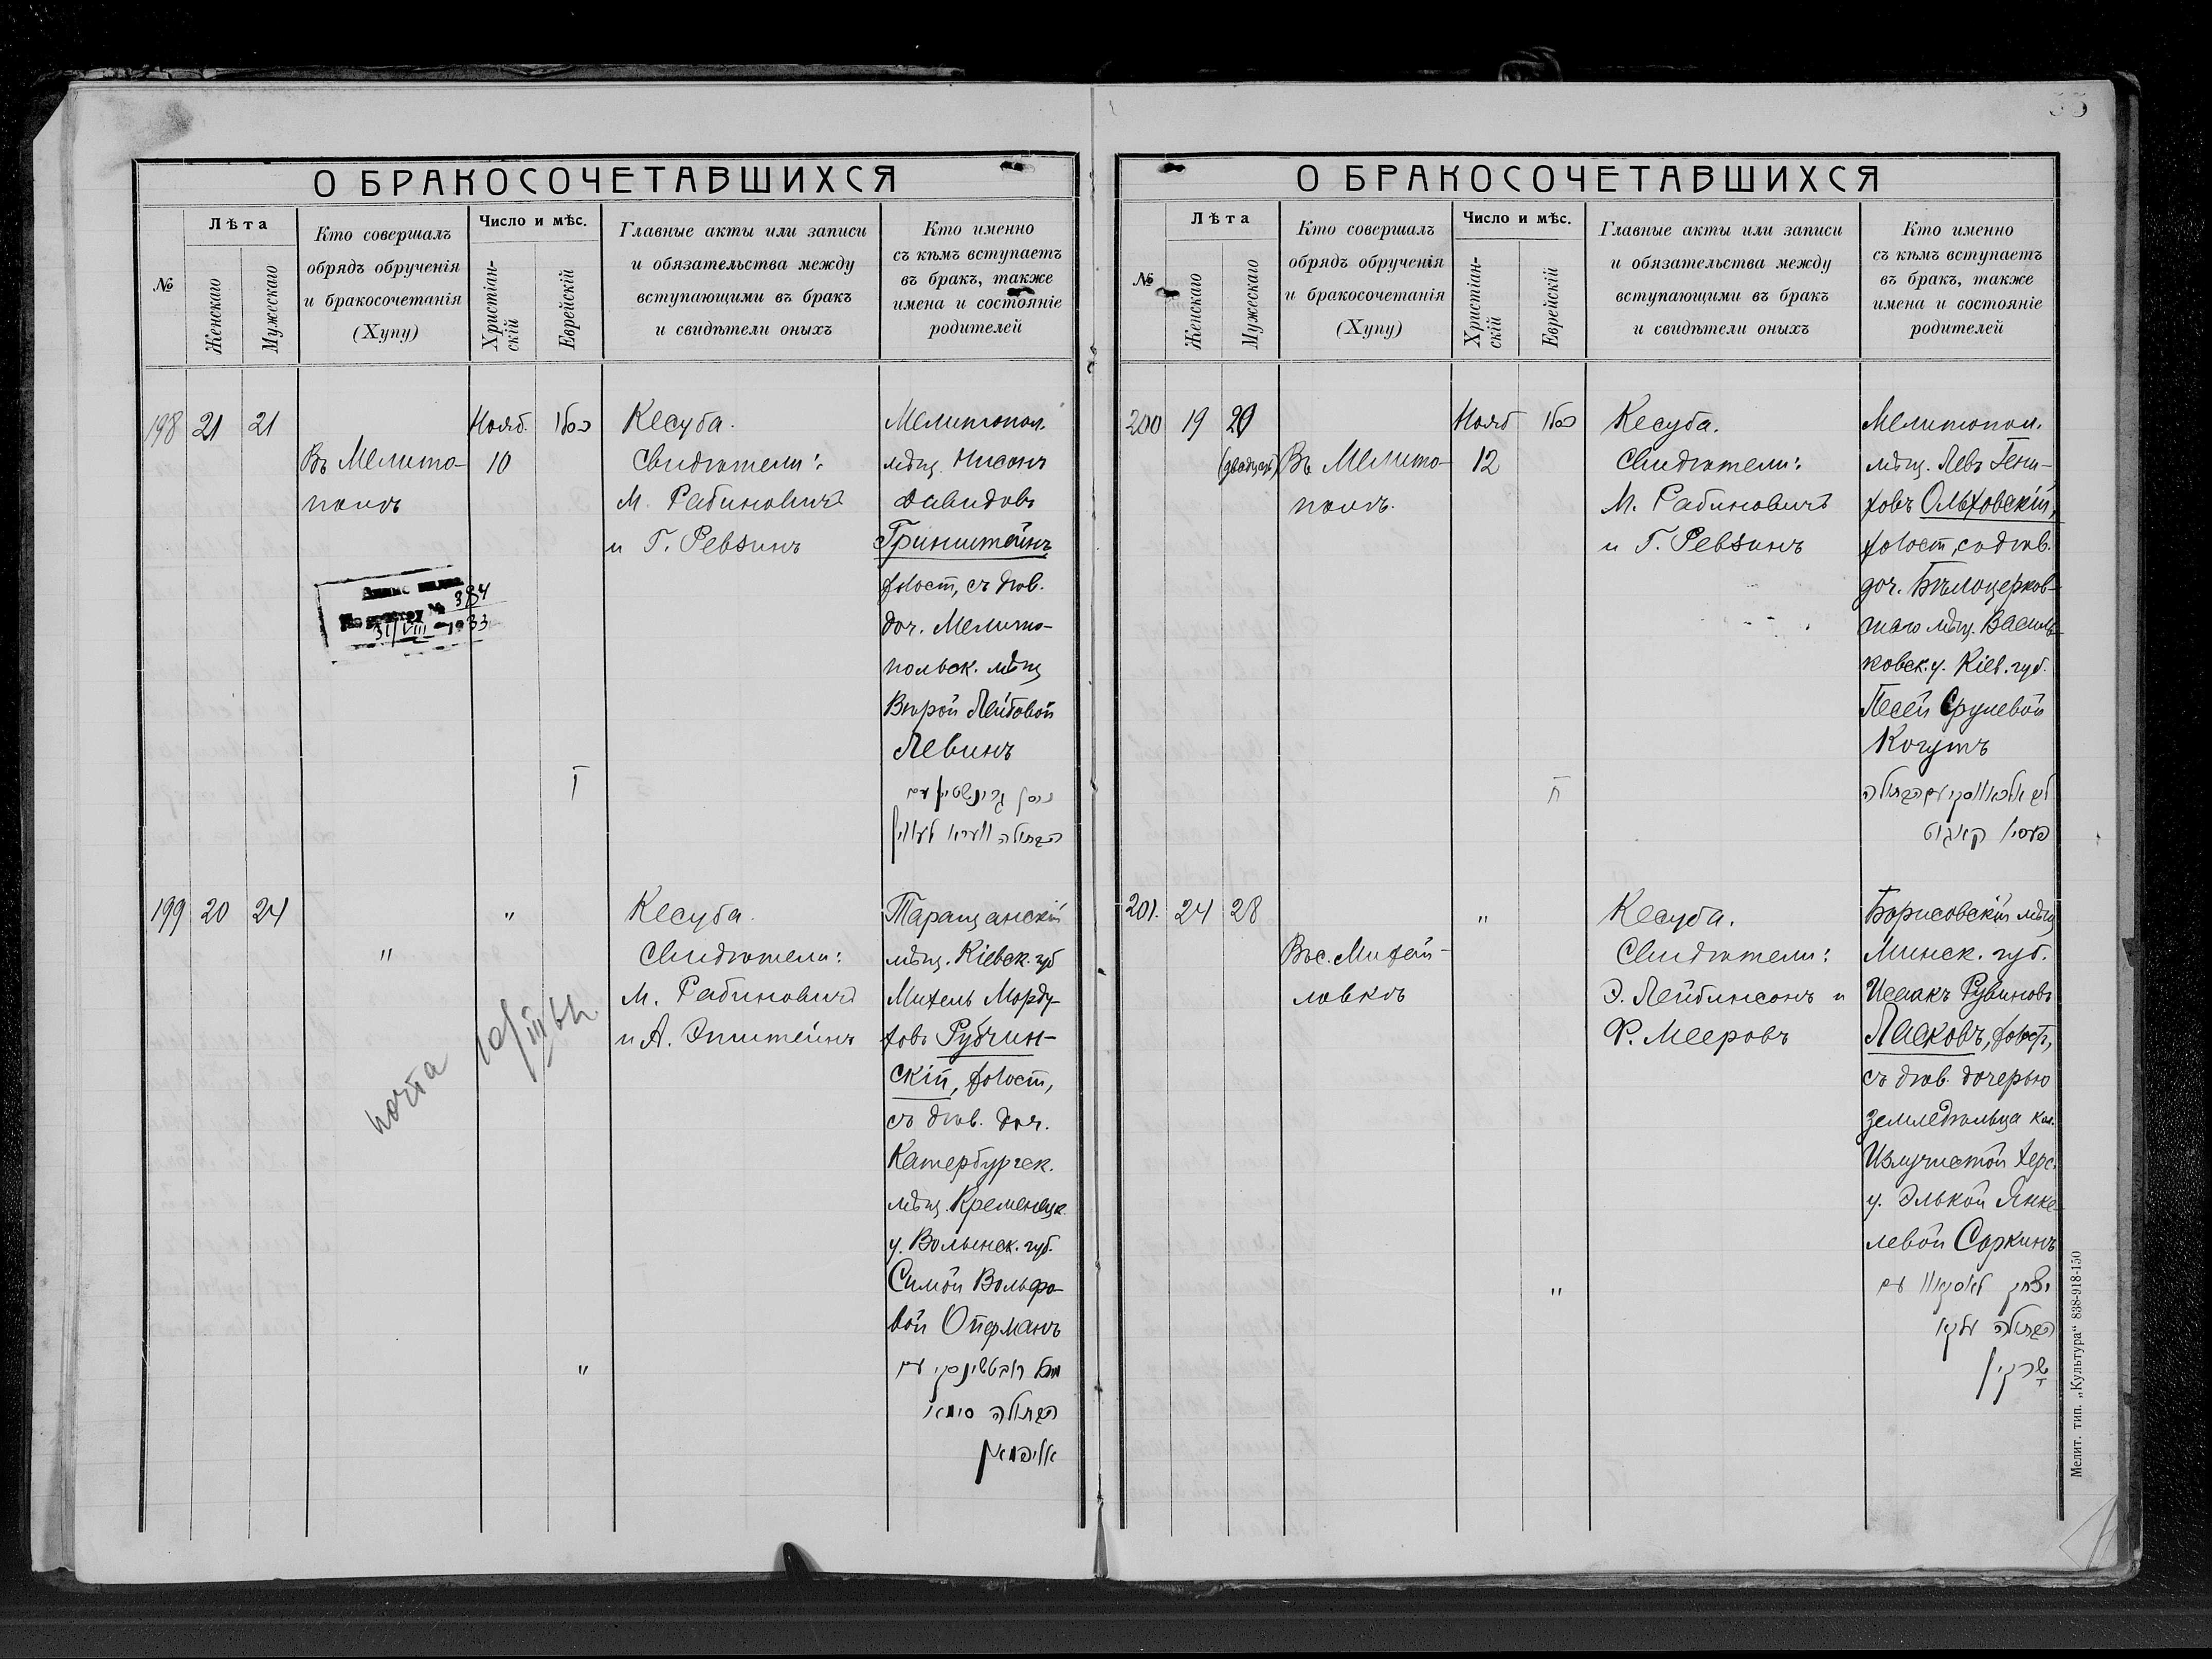 35
О БРАКОСОЧЕТАВШИХСЯ
№
Лѣта
Женскаго
Мужескаго
Кто совершалъ
обрядъ обрученія
и бракосочетанія
(Хупу)
Число и мѣс.
Христіан-
скій
Еврейскій
Главные акты или записи
и обязательства между
вступающими въ бракъ
и свидѣтели оныхъ
Кто именно
съ кѣмъ вступаетъ
въ бракъ, также
имена и состояніе
родителей
198 21 21
Въ Мелито-
полѣ
Нояб.
10
כסלו
Кесуба.
Свидѣтели:
М. Рабиновичъ
и Г. Ревзинъ
Мелитопол.
мѣщ. Нисонъ
Давидовъ
Гринштейнъ
холост, съ дѣв.
доч. Мелито-
польск. мѣщ
Вѣрой Лейбовой
Левинъ
ניסן גרינשטיין עם
הבתולה ווערא לעווין
384
31/VIII 1933
199 20 24
"
"
Кесуба.
Свидѣтели:
М. Рабиновичъ
и А. Эпштейнъ
Таращанскій
мѣщ. Кіевск. губ
Михель Морду-
ховъ Рубчин-
скій, холост,
съ дѣв. доч.
Катербургск.
мѣщ. Кременецк.
у. Волынск. губ.
Симой Вольфо-
вой Опфманъ
"
הבתולה סימא
О БРАКОСОЧЕТАВШИХСЯ
№
Лѣта
Женскаго
Мужескаго
Кто совершалъ
обрядъ обрученія
и бракосочетанія
(Хупу)
Число и мѣс.
Христіан-
скій
Еврейскій
Главные акты или записи
и обязательства между
вступающими въ бракъ
и свидѣтели оныхъ
Кто именно
съ кѣмъ вступаетъ
въ бракъ, также
имена и состояніе
родителей
200 19 20
(двадцать)
Въ Мелито-
полѣ.
Нояб
12
כסלו
ח
Кесуба.
Свидѣтели:
М. Рабиновичъ
и Г. Ревзинъ
Мелитопол.
мѣщ. Левъ Гени-
ховъ Ольховскій,
холост, съ дѣв.
доч. Бѣлоцерков-
скаго мѣщ. Василь-
ковск. у. Кіев. губ.
Песей Срулевой
Когутъ
לב אלכאווסקי עם הבתולה
פעסי קאגוט
201. 24 28
Въ с. Михай-
ловкѣ
"
"
Кесуба.
Свидѣтели:
Э. Лейбинсонъ и
Ф. Мееровъ
Борисовскій мѣщ
Минск. губ.
Исаакъ Рувиновъ
Ласковъ, холост,
съ дѣв. дочерью
земледѣльца кол.
Излучистой Херс.
у. Элькой Янке-
левой Соркинъ
יצחק לאסקאוו עם
הבתולה עלקא
שרקין
Мелит. тип. „Культура“ 838-918-150